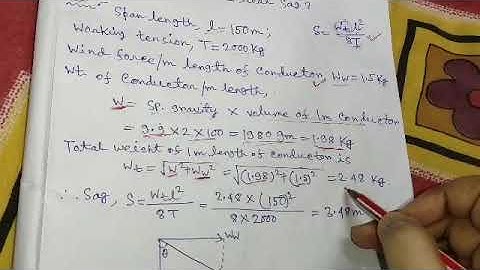 Sag?
Span length l = 150 m;
Working tension, T = 2000 Kg
S = Wt l² / 8T
Wind force/m length of conductor, Ww = 1.5 Kg
Wt of Conductor/m length,
W = Sp. gravity × volume of 1m conductor
= 9.9 × 2 × 100 = 1980 gm = 1.98 Kg
Total weight of 1m length of conductor is
Wt = √(W² + Ww²) = √((1.98)² + (1.5)²) = 2.48 Kg
∴ Sag, S = Wt l² / 8T = 2.48 × (150)² / 8 × 2000 = 3.48 m
Ww
θ